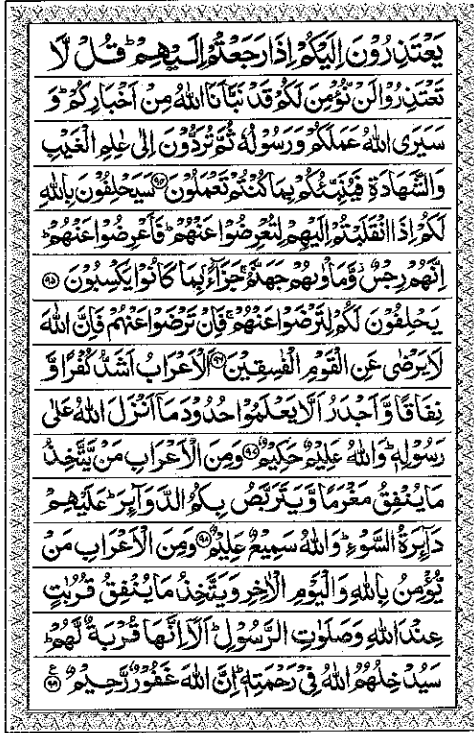 يَعْتَذِرُوْنَ اِلَيْكُمْ اِذَا رَجَعْتُمْ اِلَيْهِمْ ؕ قُلْ لَّا
تَعْتَذِرُوْا لَنْ نُّؤْمِنَ لَكُمْ قَدْ نَبَّاَنَا اللّٰهُ مِنْ اَخْبَارِكُمْ ؕ وَ
سَيَرَى اللّٰهُ عَمَلَكُمْ وَرَسُوْلُهٗ ثُمَّ تُرَدُّوْنَ اِلٰى عٰلِمِ الْغَيْبِ
وَالشَّهَادَةِ فَيُنَبِّئُكُمْ بِمَا كُنْتُمْ تَعْمَلُوْنَ ﴿۹۴﴾ سَيَحْلِفُوْنَ بِاللّٰهِ
لَكُمْ اِذَا انْقَلَبْتُمْ اِلَيْهِمْ لِتُعْرِضُوْا عَنْهُمْ ؕ فَاَعْرِضُوْا عَنْهُمْ ؕ
اِنَّهُمْ رِجْسٌ ؗ وَّمَاْوٰىهُمْ جَهَنَّمُ ۚ جَزَآءًۢ بِمَا كَانُوْا يَكْسِبُوْنَ ﴿۹۵﴾
يَحْلِفُوْنَ لَكُمْ لِتَرْضَوْا عَنْهُمْ ۚ فَاِنْ تَرْضَوْا عَنْهُمْ فَاِنَّ اللّٰهَ
لَا يَرْضٰى عَنِ الْقَوْمِ الْفٰسِقِيْنَ ﴿۹۶﴾ اَلْاَعْرَابُ اَشَدُّ كُفْرًا وَّ
نِفَاقًا وَّاَجْدَرُ اَلَّا يَعْلَمُوْا حُدُوْدَ مَاۤ اَنْزَلَ اللّٰهُ عَلٰى
رَسُوْلِهٖ ؕ وَاللّٰهُ عَلِيْمٌ حَكِيْمٌ ﴿۹۷﴾ وَمِنَ الْاَعْرَابِ مَنْ يَّتَّخِذُ
مَا يُنْفِقُ مَغْرَمًا وَّيَتَرَبَّصُ بِكُمُ الدَّوَآئِرَ ؕ عَلَيْهِمْ
دَآئِرَةُ السَّوْءِ ؕ وَاللّٰهُ سَمِيْعٌ عَلِيْمٌ ﴿۹۸﴾ وَمِنَ الْاَعْرَابِ مَنْ
يُّؤْمِنُ بِاللّٰهِ وَالْيَوْمِ الْاٰخِرِ وَيَتَّخِذُ مَا يُنْفِقُ قُرُبٰتٍ
عِنْدَ اللّٰهِ وَصَلَوٰتِ الرَّسُوْلِ ؕ اَلَاۤ اِنَّهَا قُرْبَةٌ لَّهُمْ ؕ
سَيُدْخِلُهُمُ اللّٰهُ فِيْ رَحْمَتِهٖ ؕ اِنَّ اللّٰهَ غَفُوْرٌ رَّحِيْمٌ ﴿۹۹﴾ ع